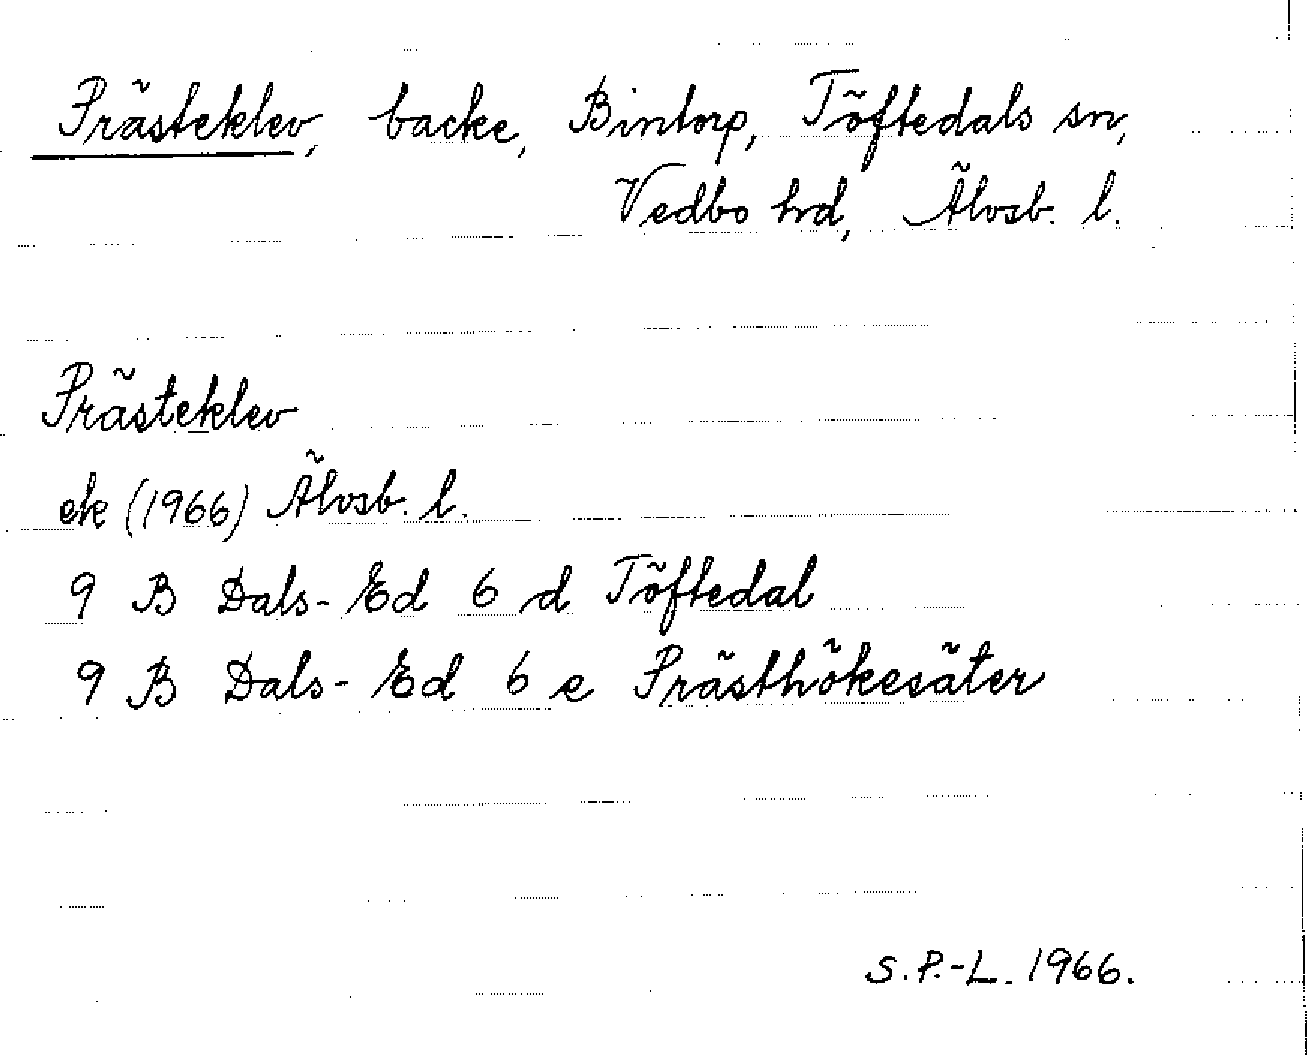 Prästeklev, backe, Bintorp, Töftedals sn,
Vedbo hd, Älvsb. l.
Prästeklev
ek (1966) Älvsb. l.
9 B Dals-Ed 6 d Töftedal
9 B Dals-Ed 6 e Prästhökesäter
S.P.-L. 1966.